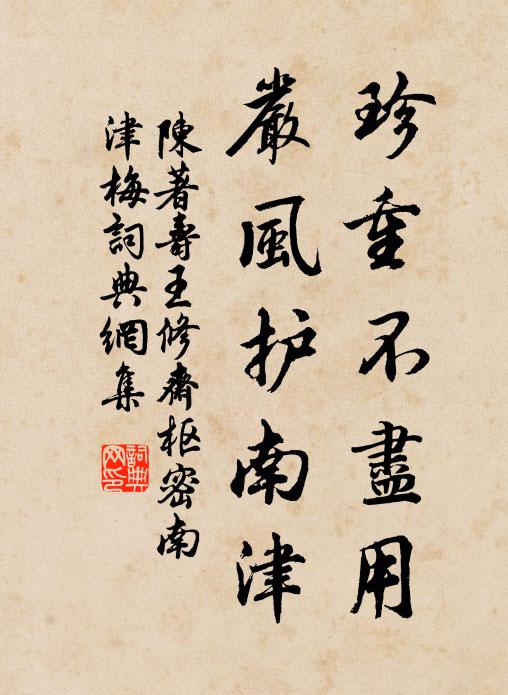 珍重不盡用
嚴風护南津
陳著壽王修齋枢密南
津梅詞典網集
詞典
网印